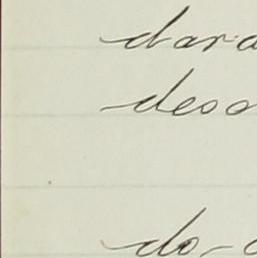 dara
deso
do-